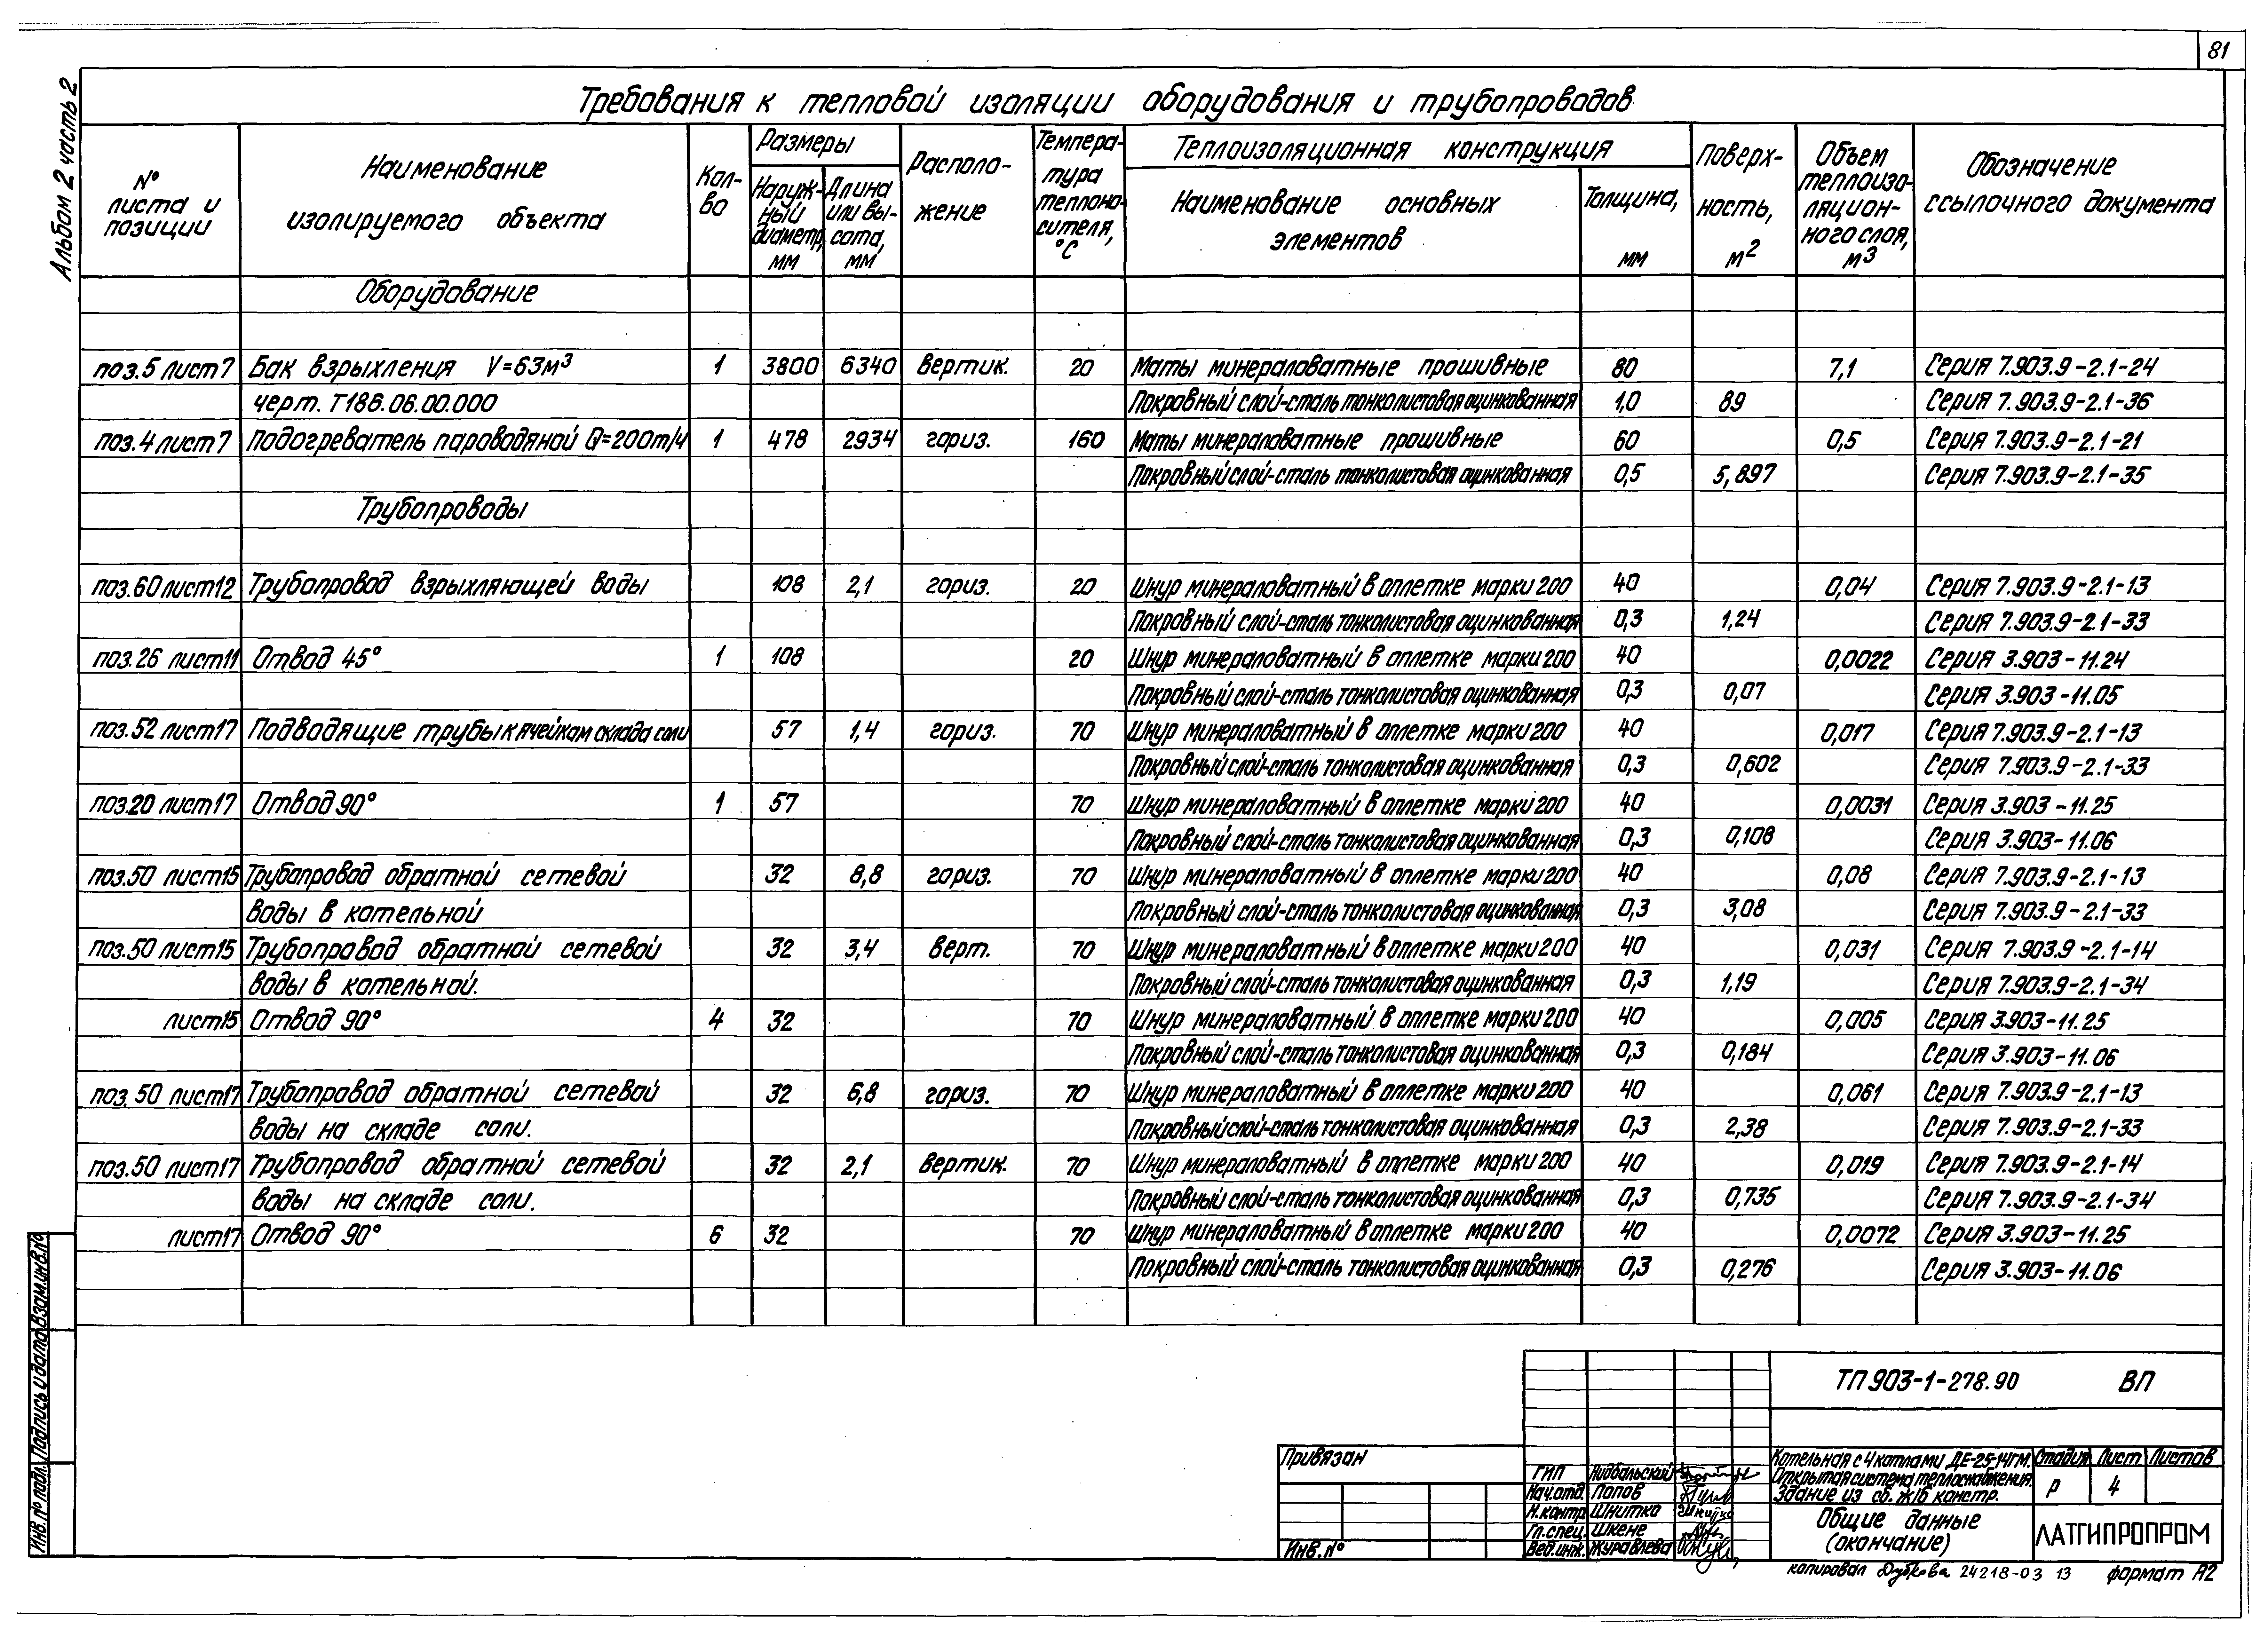 81
Альбом 2 часть 2
Требования к тепловой изоляции оборудования и трубопроводов
№ листа и позиции | Наименование изолируемого объекта | Кол-во | Размеры | Располо-жение | Темпера-тура теплоно-сителя, °С | Теплоизоляционная конструкция | Поверх-ность, м2 | Объем теплоизо-ляцион-ного слоя, м3 | Обозначение ссылочного документа
Наруж-ный диаметр, мм | Длина или вы-сота, мм | Наименование основных элементов | Толщина, мм
Оборудование
поз.5 лист7 | Бак взрыхления V=63м3 | 1 | 3800 | 6340 | вертик. | 20 | Маты минераловатные прошивные | 80 | 7,1 | Серия 7.903.9-2.1-24
черт. Т186.06.00.000 | Покровный слой-сталь тонколистовая оцинкованная | 1,0 | 89 | Серия 7.903.9-2.1-36
поз.4 лист7 | Подогреватель пароводяной Q=200т/ч | 1 | 478 | 2934 | гориз. | 160 | Маты минераловатные прошивные | 60 | 0,5 | Серия 7.903.9-2.1-21
Покровный слой-сталь тонколистовая оцинкованная | 0,5 | 5,897 | Серия 7.903.9-2.1-35
Трубопроводы
поз.60 лист12 | Трубопровод взрыхляющей воды | 108 | 2,1 | гориз. | 20 | Шнур минераловатный в оплетке марки 200 | 40 | 0,04 | Серия 7.903.9-2.1-13
Покровный слой-сталь тонколистовая оцинкованная | 0,3 | 1,24 | Серия 7.903.9-2.1-33
поз.26 лист11 | Отвод 45° | 1 | 108 | 20 | Шнур минераловатный в оплетке марки 200 | 40 | 0,0022 | Серия 3.903-11.24
Покровный слой-сталь тонколистовая оцинкованная | 0,3 | 0,07 | Серия 3.903-11.05
поз.52 лист17 | Подводящие трубы к ячейкам склада соли | 57 | 1,4 | гориз. | 70 | Шнур минераловатный в оплетке марки 200 | 40 | 0,017 | Серия 7.903.9-2.1-13
Покровный слой-сталь тонколистовая оцинкованная | 0,3 | 0,602 | Серия 7.903.9-2.1-33
поз.20 лист17 | Отвод 90° | 1 | 57 | 70 | Шнур минераловатный в оплетке марки 200 | 40 | 0,0031 | Серия 3.903-11.25
Покровный слой-сталь тонколистовая оцинкованная | 0,3 | 0,108 | Серия 3.903-11.06
поз.50 лист15 | Трубопровод обратной сетевой | 32 | 8,8 | гориз. | 70 | Шнур минераловатный в оплетке марки 200 | 40 | 0,08 | Серия 7.903.9-2.1-13
воды в котельной | Покровный слой-сталь тонколистовая оцинкованная | 0,3 | 3,08 | Серия 7.903.9-2.1-33
поз.50 лист15 | Трубопровод обратной сетевой | 32 | 3,4 | верт. | 70 | Шнур минераловатный в оплетке марки 200 | 40 | 0,031 | Серия 7.903.9-2.1-14
воды в котельной. | Покровный слой-сталь тонколистовая оцинкованная | 0,3 | 1,19 | Серия 7.903.9-2.1-34
лист15 | Отвод 90° | 4 | 32 | 70 | Шнур минераловатный в оплетке марки 200 | 40 | 0,005 | Серия 3.903-11.25
Покровный слой-сталь тонколистовая оцинкованная | 0,3 | 0,184 | Серия 3.903-11.06
поз.50 лист17 | Трубопровод обратной сетевой | 32 | 6,8 | гориз. | 70 | Шнур минераловатный в оплетке марки 200 | 40 | 0,061 | Серия 7.903.9-2.1-13
воды на складе соли. | Покровный слой-сталь тонколистовая оцинкованная | 0,3 | 2,38 | Серия 7.903.9-2.1-33
поз.50 лист17 | Трубопровод обратной сетевой | 32 | 2,1 | вертик. | 70 | Шнур минераловатный в оплетке марки 200 | 40 | 0,019 | Серия 7.903.9-2.1-14
воды на складе соли. | Покровный слой-сталь тонколистовая оцинкованная | 0,3 | 0,735 | Серия 7.903.9-2.1-34
лист17 | Отвод 90° | 6 | 32 | 70 | Шнур минераловатный в оплетке марки 200 | 40 | 0,0072 | Серия 3.903-11.25
Покровный слой-сталь тонколистовая оцинкованная | 0,3 | 0,276 | Серия 3.903-11.06
Инв. № подл. | Подпись и дата | Взам.инв.№
ТП 903-1-278.90 ВП
Привязан
Инв. №
ГИП | Нидбальский
Нач.отд. | Попов
Н.контр | Шнитко
Гл.спец. | Шкене
Вед.инж. | Журавлева
Котельная с 4 котлами ДЕ-25-14ГМ.
Открытая система теплоснабжения.
Здание из сб. ж/б констр.
Стадия | Лист | Листов
Р | 4
Общие данные
(окончание)
ЛАТГИПРОПРОМ
копировал Дубкова 24218-03 13 формат А2